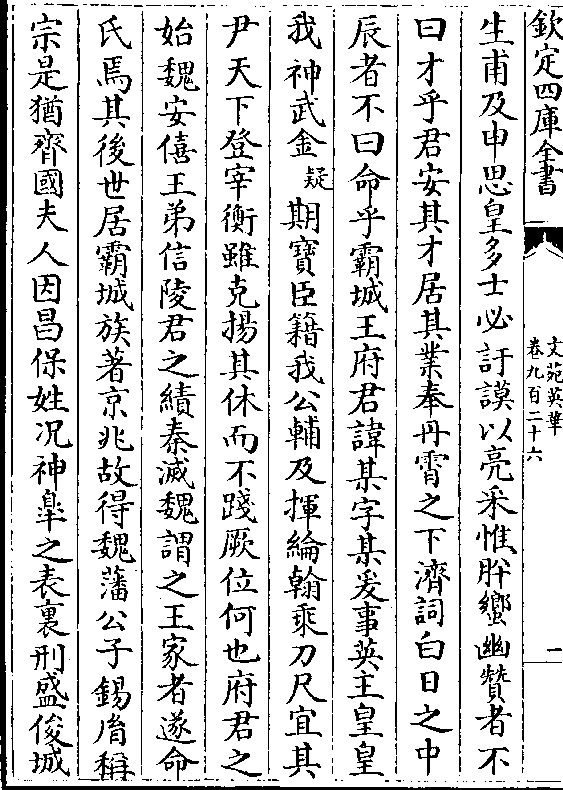 欽定四庫全書
文苑英華
卷九百二十六
一
生甫及申思皇多士必訏謨以亮采惟肸蠁幽贊者不
曰才乎君安其才居其業奉丹霄之下濟詞白日之中
辰者不曰命乎霸城王府君諱某字某爰事英主皇皇
我神武金疑期寶臣籍我公輔及揮綸翰乘刀尺宜其
尹天下登宰衡雖克揚其休而不踐厥位何也府君之
始魏安僖王弟信陵君之績秦滅魏謂之王家者遂命
氏焉其後世居霸城族著京兆故得魏藩公子錫胤稱
宗是猶齊國夫人因昌保姓况神臯之表裏刑盛俊城